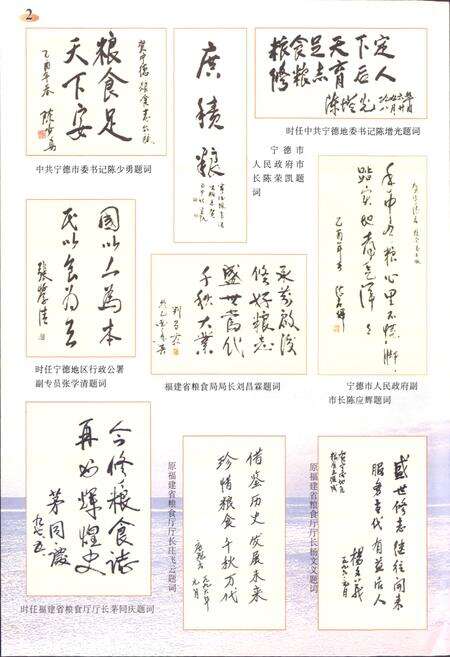 2
粮食足
天下安
中共宁德市委书记陈少勇题词
广积粮
宁德市
人民政府市
长陈荣凯题
词
粮食足天下定
修粮志育后人
陈增光
时任中共宁德地委书记陈增光题词
国以人为本
民以食为天
张学清
时任宁德地区行政公署
副专员张学清题词
承前启后
修好粮志
盛世当代
千秋大业
福建省粮食局局长刘昌霖题词
手中有粮心里不慌脚
踏实地喜气洋洋
乙酉年
宁德市人民政府副
市长陈应辉题词
今修粮食志
再如辉煌史
茅同庆
九七、五
时任福建省粮食厅厅长茅同庆题词
借鉴历史 发展未来
珍惜粮食 千秋万代
原福建省粮食厅厅长庄飞云题词
盛世修志继往开来
服务当代有益后人
杨文义
原福建省粮食厅厅长杨文义题词